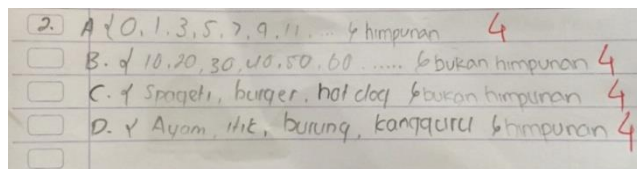 2. A {0, 1, 3, 5, 7, 9, 11, ... } himpunan 4
B. { 10, 20, 30, 40, 50, 60 ...... } bukan himpunan 4
C. { Spageti, burger, hot dog } bukan himpunan 4
D. { Ayam, itik, burung, kangguru } himpunan 4